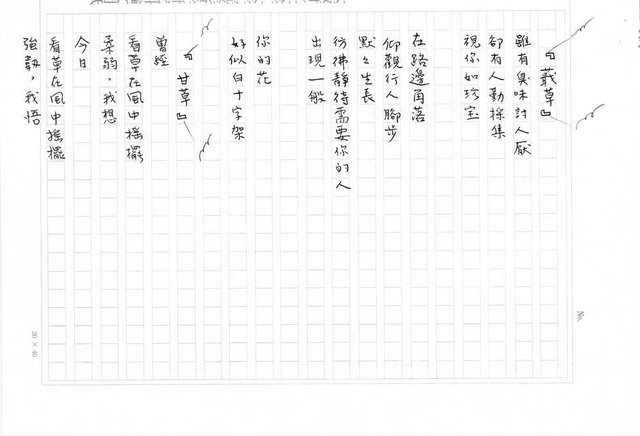 『蕺草』
雖有臭味討人厭
卻有人勤採集
視你如珍宝
在路邊角落
仰觀行人腳步
默々生長
彷彿靜待需要你的人
出現一般
你的花
好似白十字架
『甘草』
曾經
看草在風中搖擺
柔弱，我想
今日
看草在風中搖擺
強韌，我悟
No.
20×40